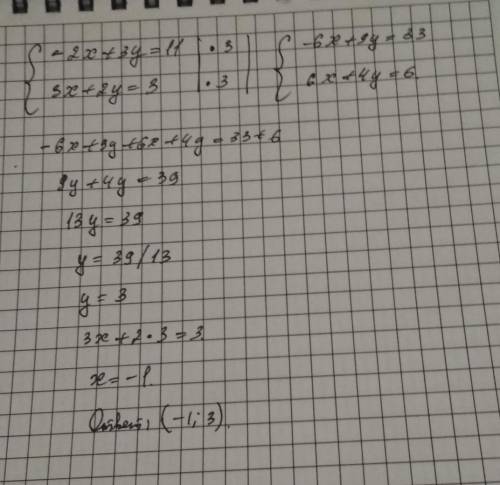 { -2x+3y=11 | ·3 | { -6x+9y=33
3x+2y=3 | ·3 | 6x+4y=6
-6x+9y+6x+4y=33+6
9y+4y=39
13y=39
y=39/13
y=3
3x+2·3=3
x=-1.
Ответ: (-1; 3).